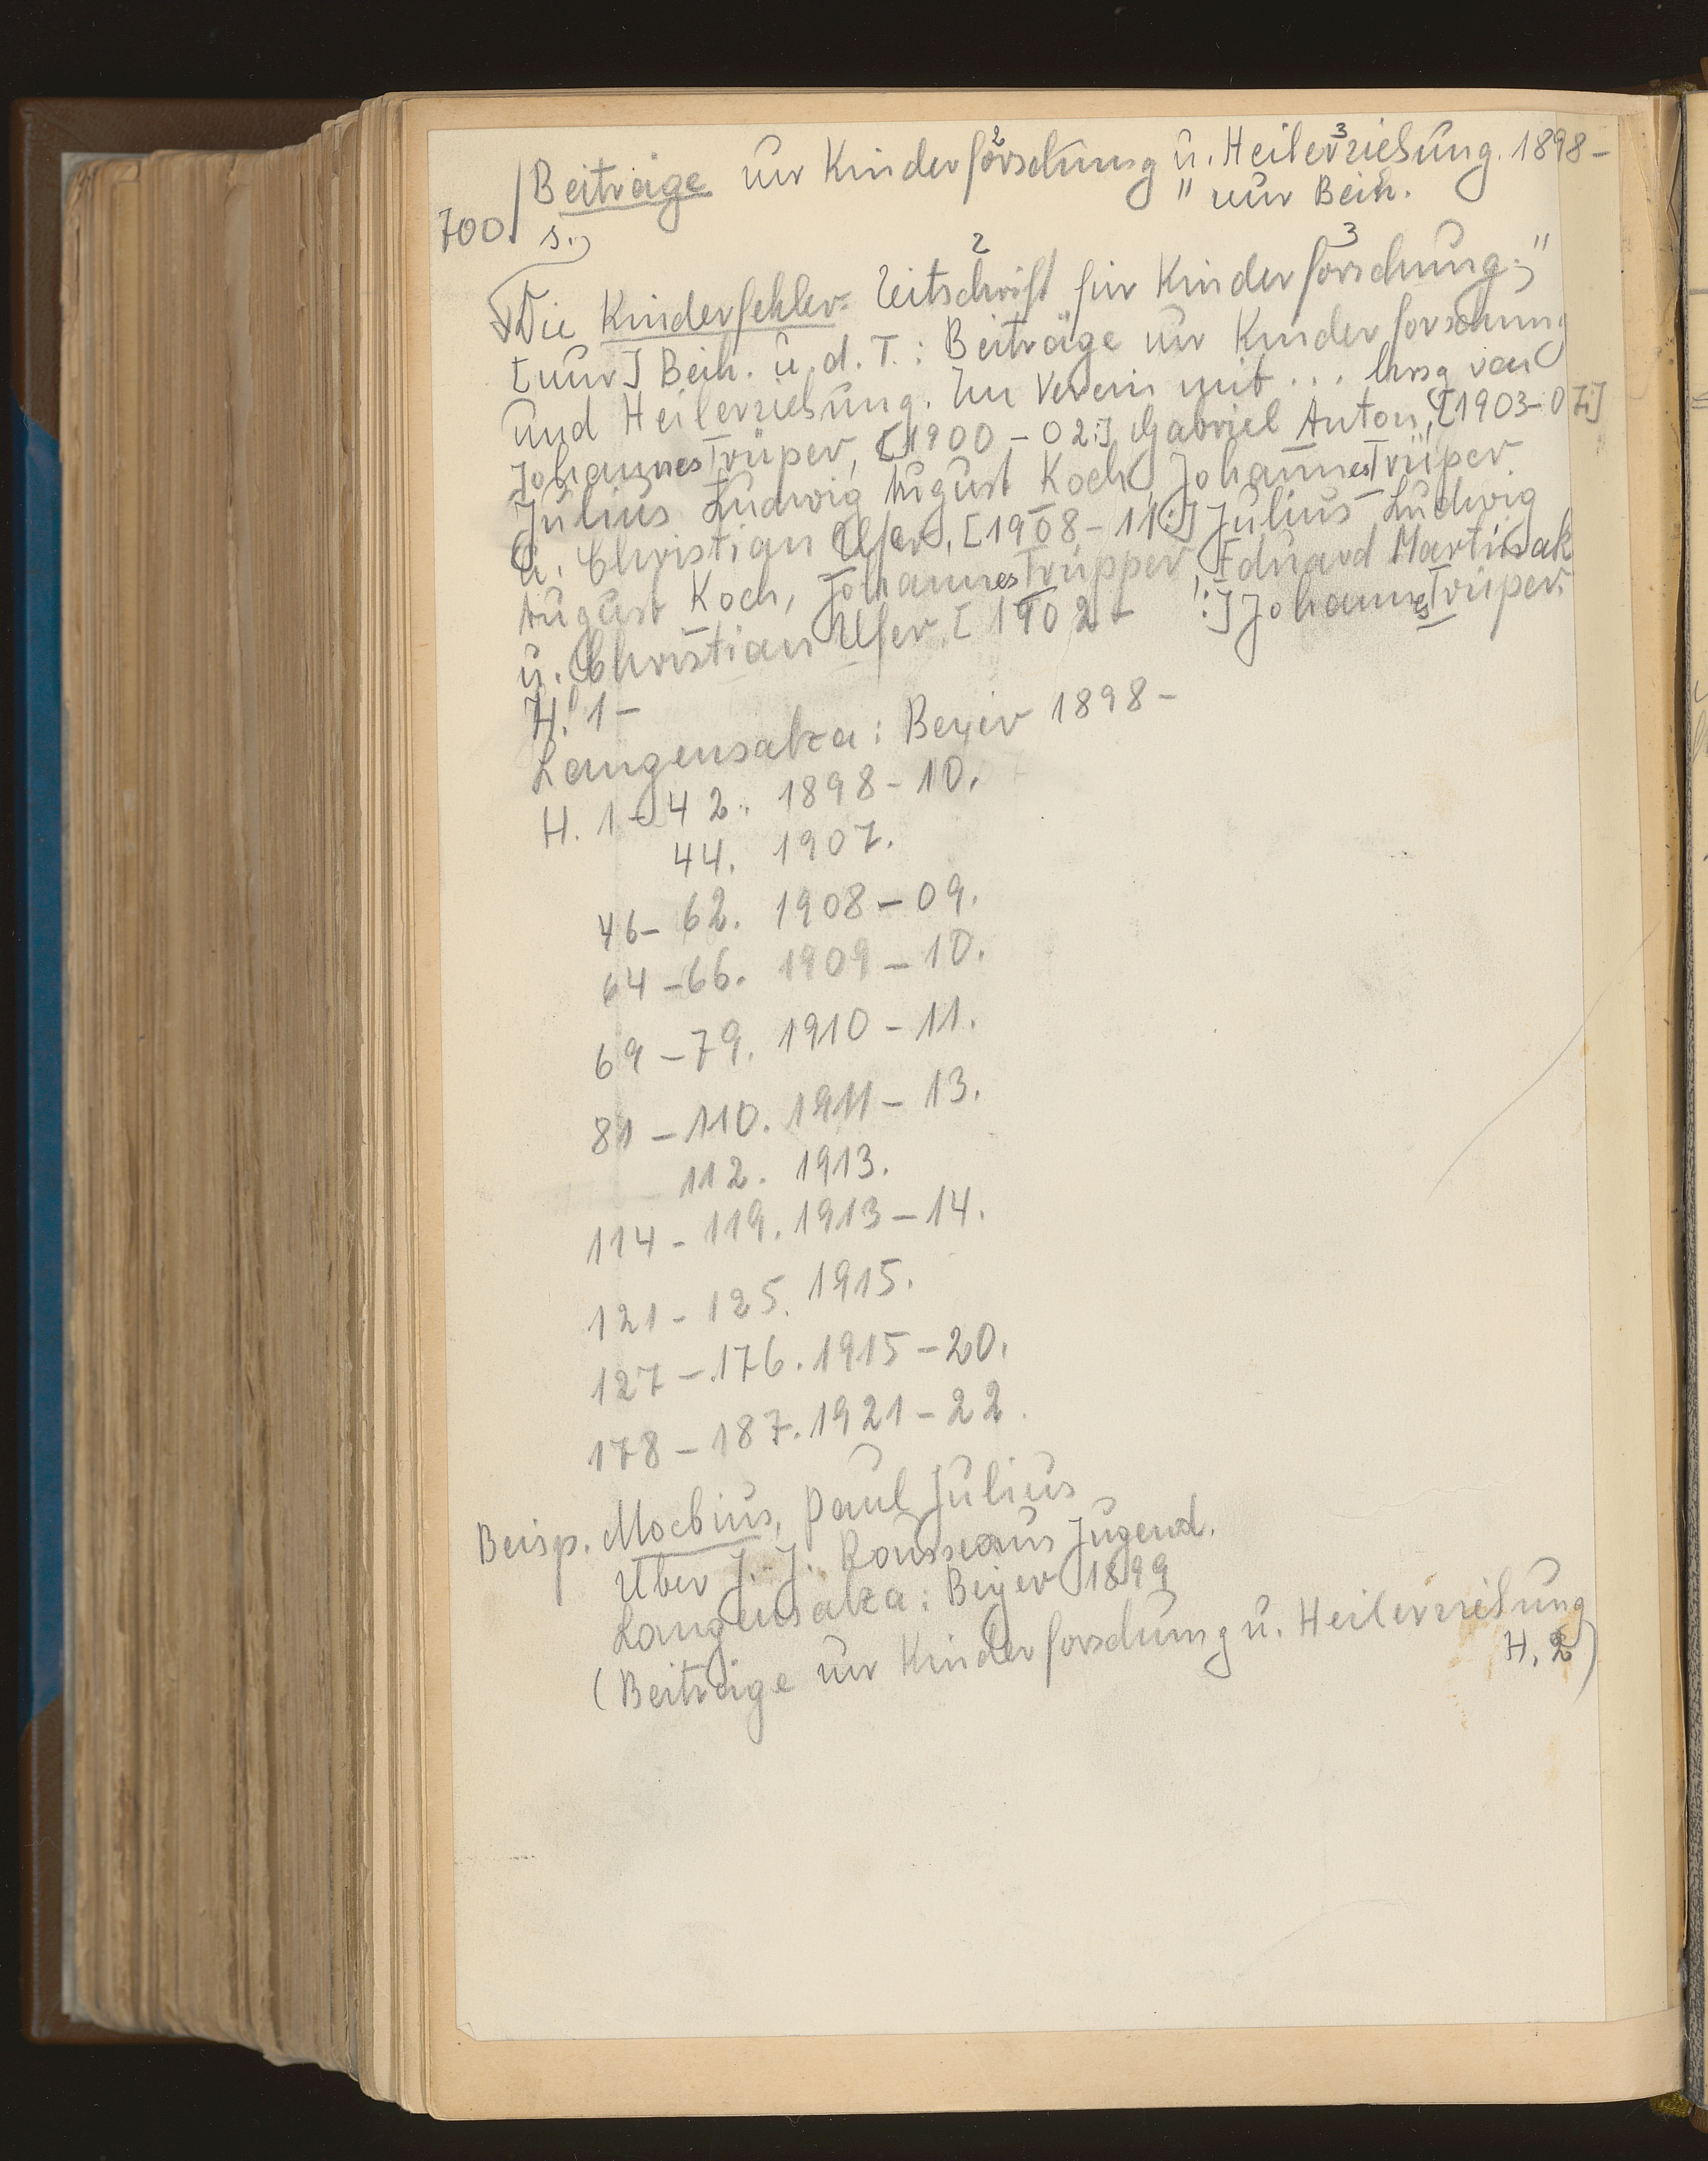 Beiträge zur Kinderforschung u. Heilerziehung. 1898-
" zur Beih.
700. s.
Die Kinderfehler. Zeitschrift für Kinderforschung;"
[zur] Beih. u. d. T.: Beiträge zur Kinderforschung
und Heilerziehung. Im Verein mit ... hrsg von
Johannes Trüper, [1900-02:] Gabriel Anton, [1903-07:]
Julius Ludwig August Koch, Johannes Trüper
u. Christian Ufer, [1908-11:] Julius Ludwig
August Koch, Johannes Trüpper, Eduard Martinak
u. Christian Ufer. [1902- :] Johannes Trüper.
H. 1-
Langensalza: Beyer 1898-
H. 1-42. 1898-10.
44. 1907.
46-62. 1908-09.
64-66. 1909-10.
69-79. 1910-11.
81-110. 1911-13.
112. 1913.
114-119. 1913-14.
121-125. 1915.
127-176. 1915-20.
178-187. 1921-22.
Beisp. Moebius, Paul Julius
Über J. J. Rousseaus Jugend.
Langensalza: Beyer 1899
(Beiträge zur Kinderforschung u. Heilerziehung
H. 2)